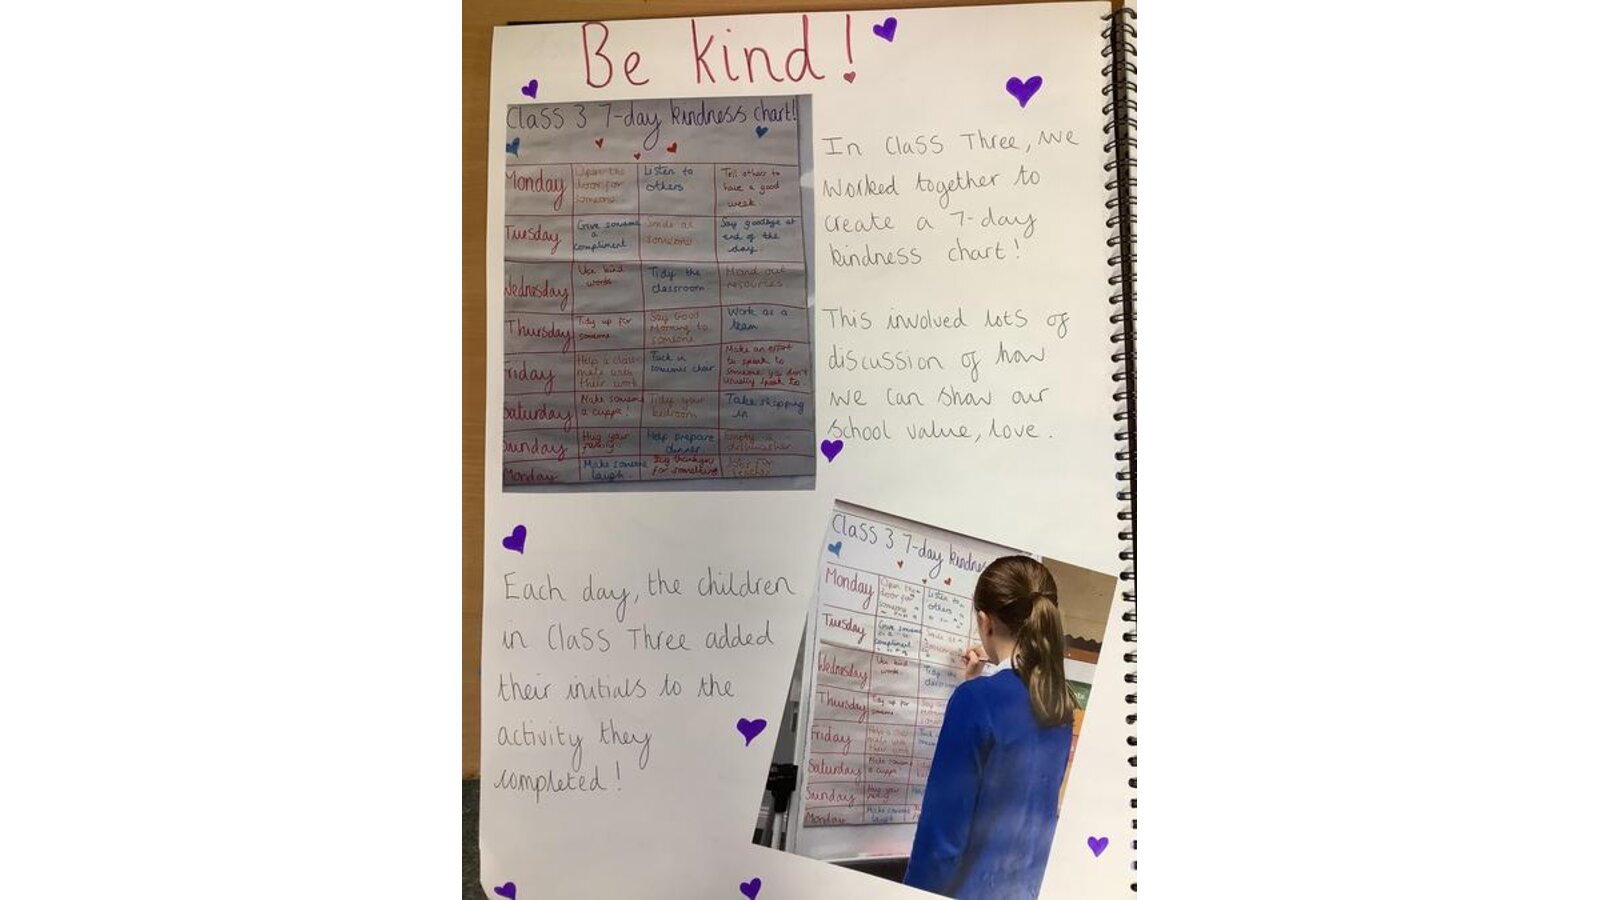 Be kind!
Class 3 7-day kindness chart!
Monday
Open the
door for
someone
Listen to
others
Tell others to
have a good
week.
Tuesday
Give someone
a
compliment
Smile at
someone
Say goodbye at
end of the
day
Wednesday
Use kind
words
Tidy the
classroom
Hand out
resources
Thursday
Tidy up for
someone
Say Good
Morning to
someone
Work as a
team
Friday
Help a class
mate with
their work
Tuck in
someones chair
Make an effort
to speak to
someone you don't
usually speak to
Saturday
Make someone
a cuppa!
Tidy your
bedroom
Take shopping
in
Sunday
Hug your
family
Help prepare
dinner
Empty
dishwasher
Monday
Make someone
laugh.
Say thankyou
for something
In Class Three, we
worked together to
create a 7-day
kindness chart!
This involved lots of
discussion of how
we can show our
school value, love.
Each day, the children
in Class Three added
their initials to the
activity they
completed!
Class 3 7-day kindnes
Monday
Open the
door for
someone
Listen to
others
Tuesday
Give someone
a
compliment
Smile at
someone
Wednesday
Use kind
words
Tidy the
classroom
Thursday
Tidy up for
someone
Friday
Help a class
mate with
their work
Saturday
Make someone
a cuppa!
Sunday
Hug your
family
Monday
Make someone
laugh